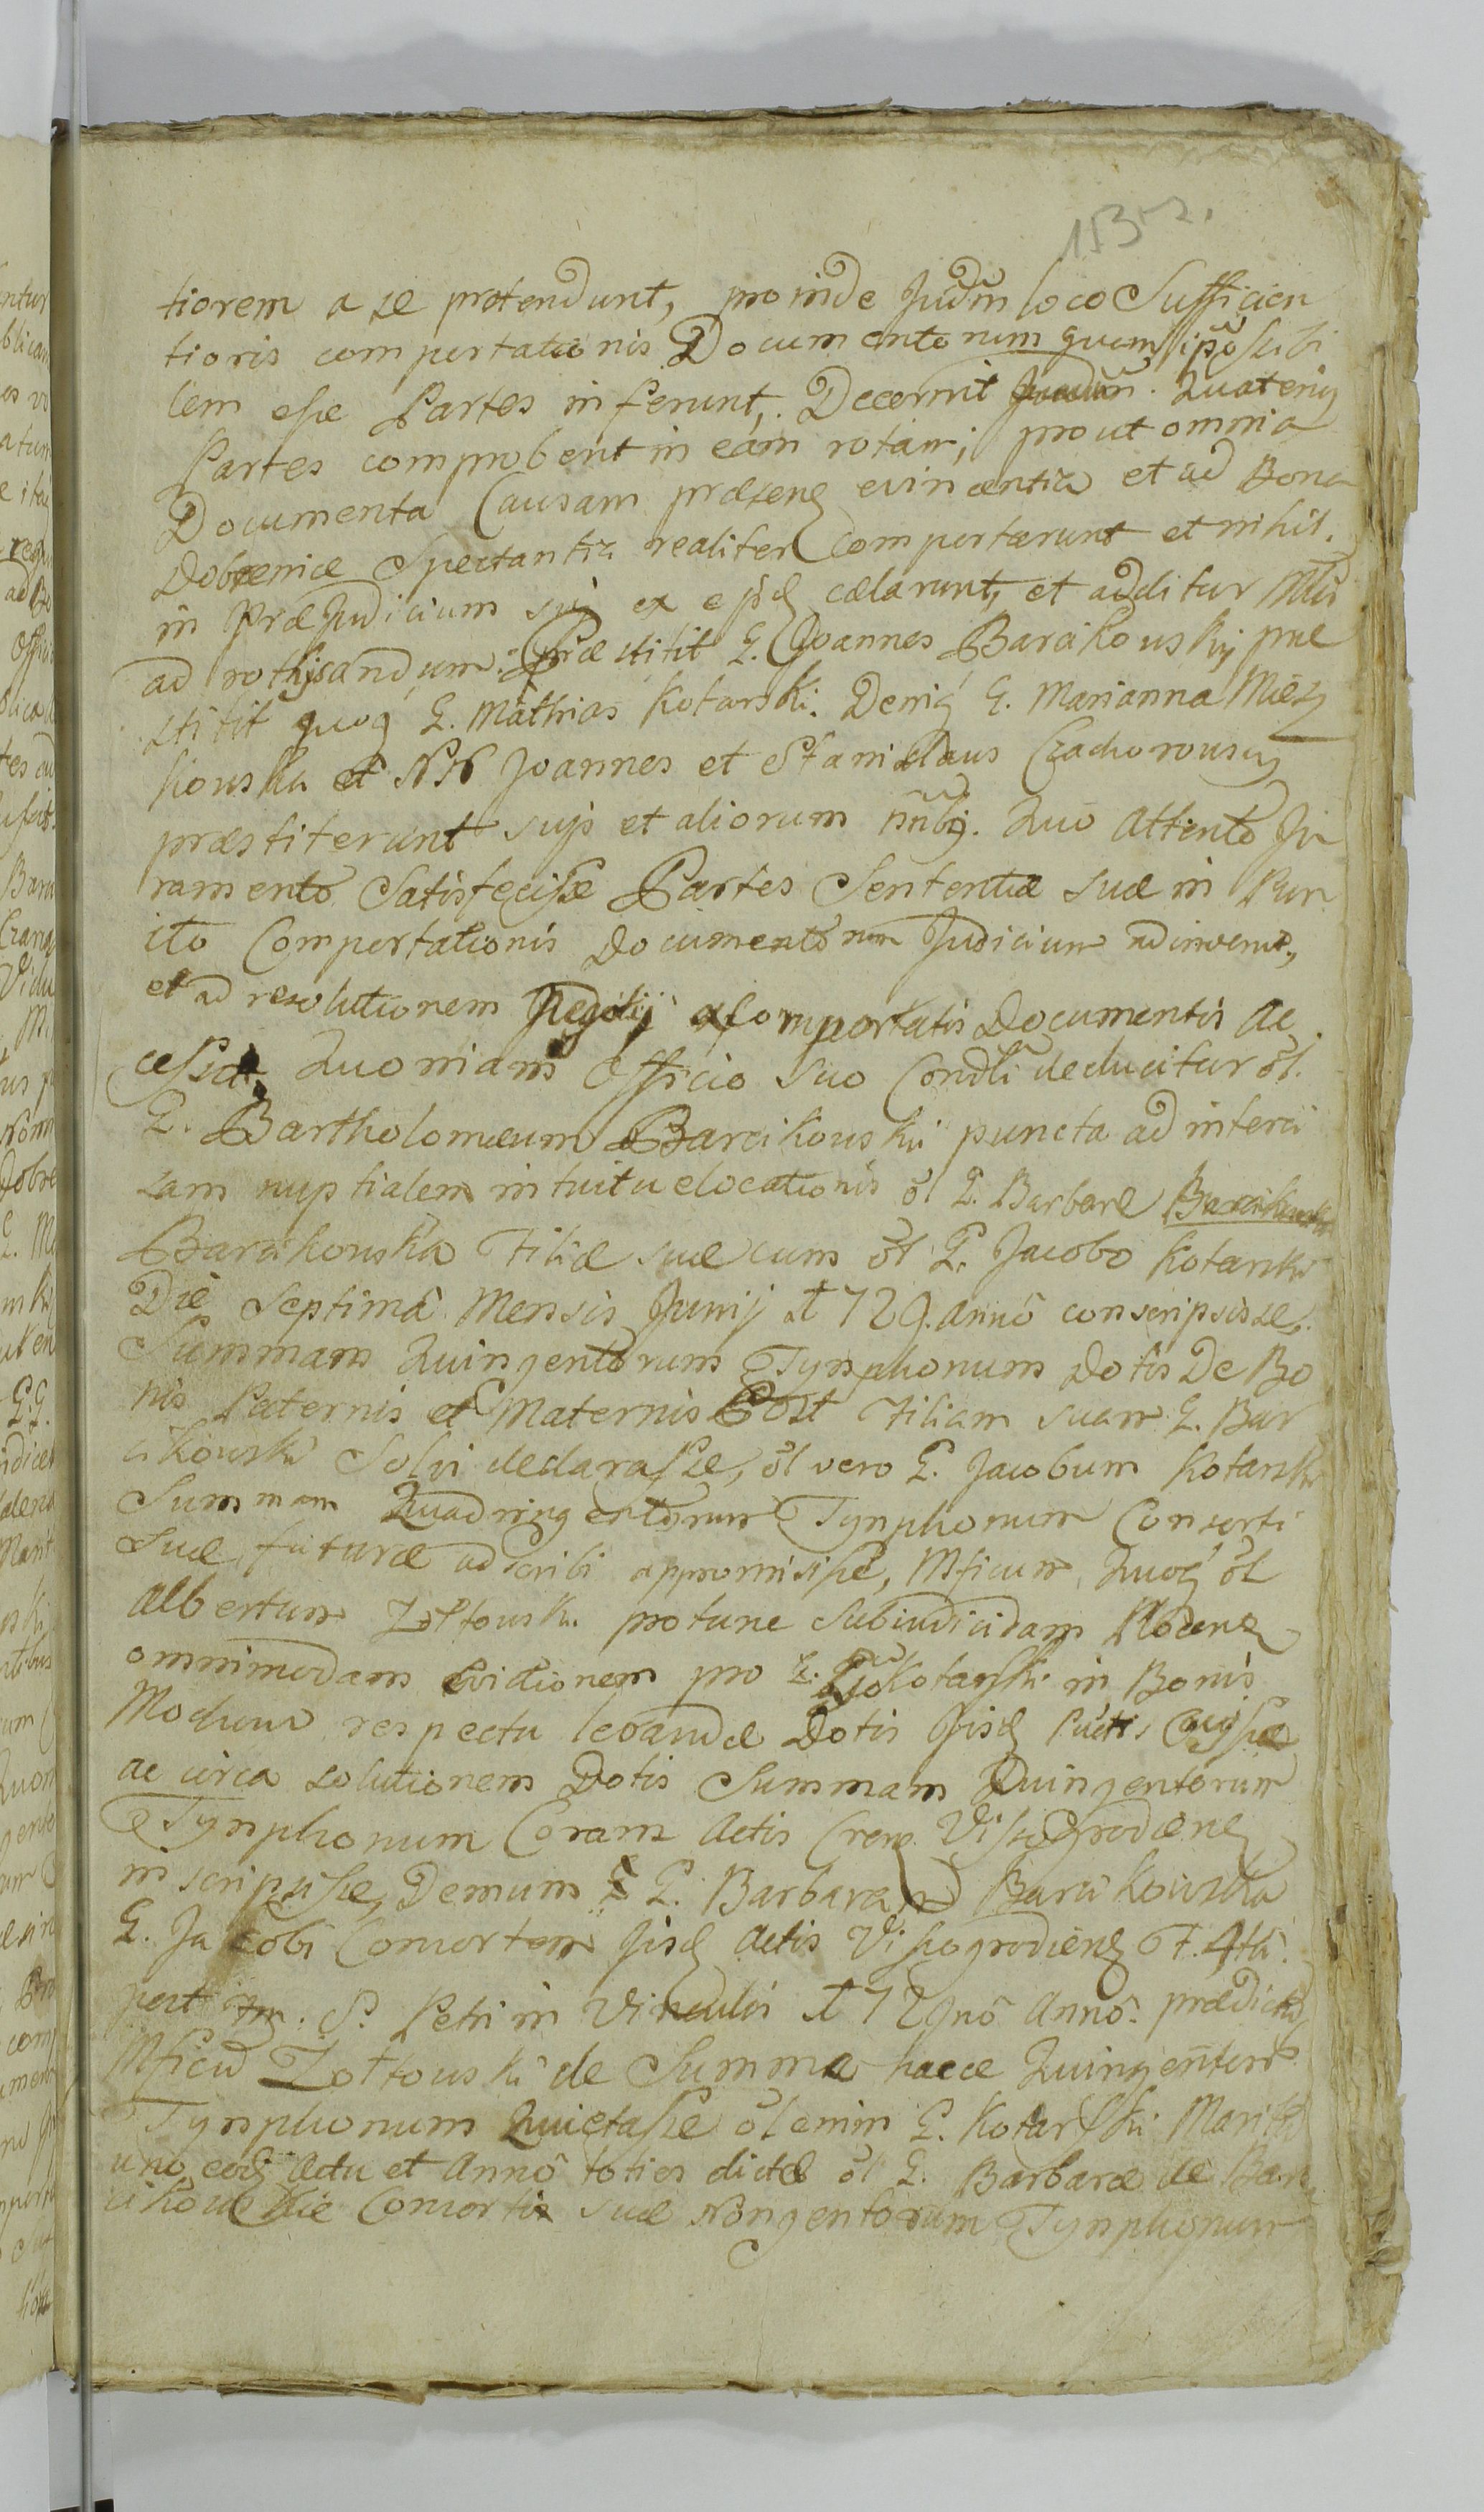 153
tiorem a se prætendunt, proinde Judm loco Sufficien
tioris comportationis Documentorum quam
lem esse Partes inferunt, Decernit Judm. Quaterig
Partes comprobent in eam rotam; prout omnia
Documenta Causam præsenz evincentia et ad Bona
Dobrenice Spectantia realiter comportarunt et nihil.
in Præjudicium sui ex eisd cælarunt, et additur Mltr
ad rothisandum. Præstitit G. Joannes Barcikouskij præ
stitit quoq G. Mathias Kotarski. Deniq G. Marianna Miez
kouska et NN Joannes et Stanislaus Czachorouscy
præstiterunt suis et aliorum nnbq. Quô Attentô Ju
ramentô Satisfecisse Partes Sententiæ suæ in Pun
cto Comportationis Documentorum Judicium adinvenit,
et ad resolutionem Negotij ex Comportatis Documentis Ac
cessit, Quoniam Officio suo Condli deducitur ol.
G. Bartholomæum Barcikouski puncta ad interci
sam nuptialem intuitu elocationis ol G. Barbaræ
Barcikouska Filiæ suæ cum ol G. Jacobo Kotarski
Die Septimâ Mensis Junij A 729. annô conscripsisse,
Summam Quingentorum Tynphonum Dotis De Bo
nis Paternis et Maternis Post Filiam suam G. Bar
cikouski Solvi declarasse, ol vero G. Jacobum Kotarski
Summam Quadringentorum Tynphonum Consorti
Suæ futuræ adscribi appromisisse, Mficum Quoq ol
Albertum Zoltouski protunc Subiudicidam Plocenz
omnimodam evictionem pro G. Kotarski in Bonis
Mochowo respectu levandæ Dotis iisd
ac circa solutionem Dotis Summam Quingentorum
Tynphonum Coram Actis Cren. Vissogrodienz
inscripsisse, Demum G. Barbaram Barcikouska
G. Jacobi Consortem iisd Actis Vissogrodienz F. 4tâ
post fm. S. Petri in Vinculis A 729nô Annô prædictum
Mficu Zoltouski de Summa hacce Quingentorum
Tynphonum Quietasse ol enim G. Kotarski Maritu
uno eodq Actu et Annô toties dictæ ol G. Barbaræ de Bar
cikouskie Consorti suæ Nongentorum Tynphonum